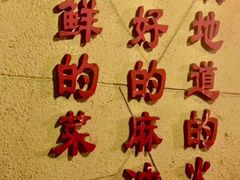 地道的火
好的麻
鲜的菜